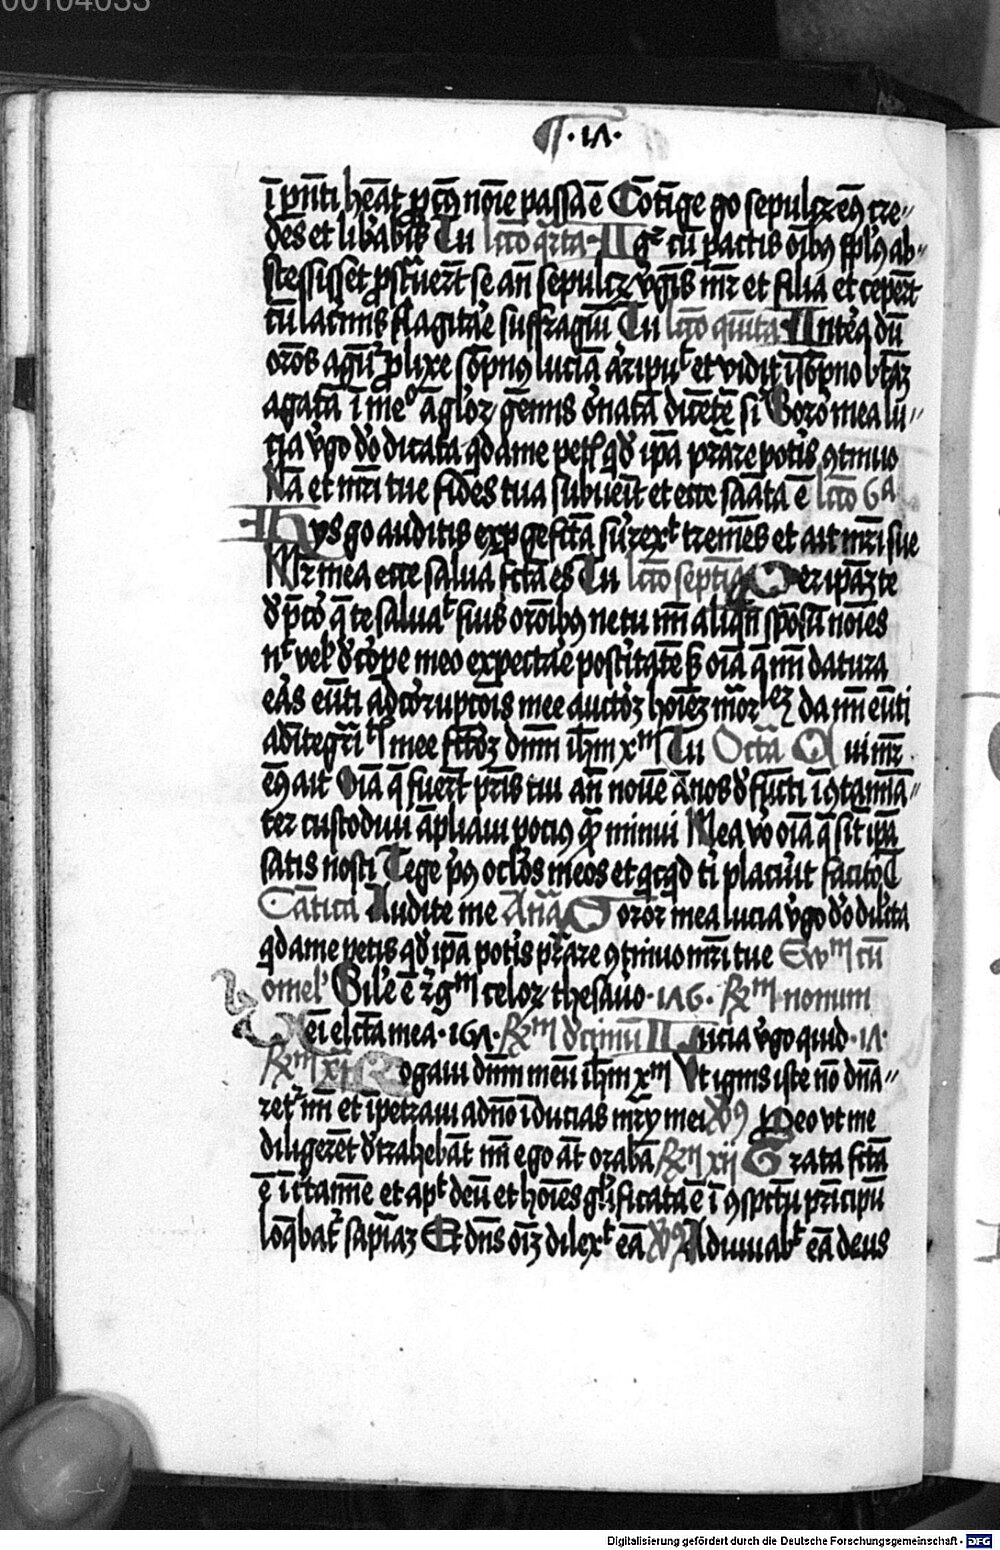 00104033
¶ · 17 ·
ī p̄n̄ti hēat p̄ cuꝰ noīe passa ē Cōtīge go sepulcꝝ eiꝰ cre„
dēs et libāb̄is Tu lcc̄o q̄rta Igr̄ cū pactis oībꝰ ppl̄ꝰ ab„
scessisset ꝓst̄ūert̄ se an̄ sepulcꝝ v̓gīs mr̄ et filia et cepert̄
cū lac̓mis flagitār̄e suffragiū Tu lcc̄o quīta Inteā dū
orōs agūt̄ ꝓlixe sōpnꝰ luciā arripuᵗ et vidit ī sōpno btāꝫ
agatā ī meᵒ āgl̓oꝝ gēmis ornatā dicētē s̄i Soror mea lu„
cia v̓go dō dicata qd̄ a me petˢ qd̓ ipa p̄star̄e pot̓is ꝯtinuo
Nā et mr̄i tue fides tua subueīt et ecce sanata ē lcc̄o 6ª
Hys go auditis expgefctā surrexᵗ tremēs et ait mr̄i sue
Mr̄ mea ecce salua fctā es Tu lcc̄o septīa Per ipāꝫ te
d̓p̄cor q̄ te saluaᵗ suis orōibꝰ ne tu m̄ aliqn̄ spōsū noīes
nᶜ vel̓ d̓ corpe meo expectāe post̓itatē ꝫ oīa q̄ m̄ datura
eās eūti ad corruptōis mee auctoꝫ hoīeꝫ mōrlēꝫ da m̄ eūti
ad ītegr̄itᵉ mee fctōꝫ dn̄m ih̄m xᵐ Tu Octā Cui mr̄
eiꝰ ait Oīa q̄ fuert̄ p̄ris tui an̄ nouē annos d̓fūcti ī ꝯtamīa„
ter custodiui āpliaui pociꝰ qᵃ̄ minui Mea vo oīa q̄ sīt ipa
satis nosti Tege pꝰ oclōs meos et qcqd ti placuīt facito
Cātica Audite me An̄a Soror mea lucia v̓go dō dilcta
qd̄ a me petis qd̓ ipa pot̓is p̄star̄e ꝯtinuo mr̄i tue Ewᵐ cū
omel̓ Sil̓e ē rgᵐ celoꝝ thesauro · 176 · Rᵐ nonum
Uei elcta mea · 167 · Rᵐ d̓cimū Lucia v̓go quid · 17 ·
Rᵐ xi Rogaui dn̄m meū ih̄m xᵐ Ut ignis iste nō dn̄a„
retʳ m̄ et īpetraui a dn̄o īducias mr̄y mei Vꝰ Pro eo vt me
diligerēt d̓trahebāt m̄ ego āt orabā Rᵐ xii Grata fctā
ē ī cetamīe et apᵗ deū et hoīes gl̓ificata ē ī ꝯspctu prīcipū
loq̄batʳ sapīaꝫ Et dn̄s oīꝫ dilexᵗ eā Vꝰ Adiuuabᵗ eā deus
Digitalisierung gefördert durch die Deutsche Forschungsgemeinschaft - DFG